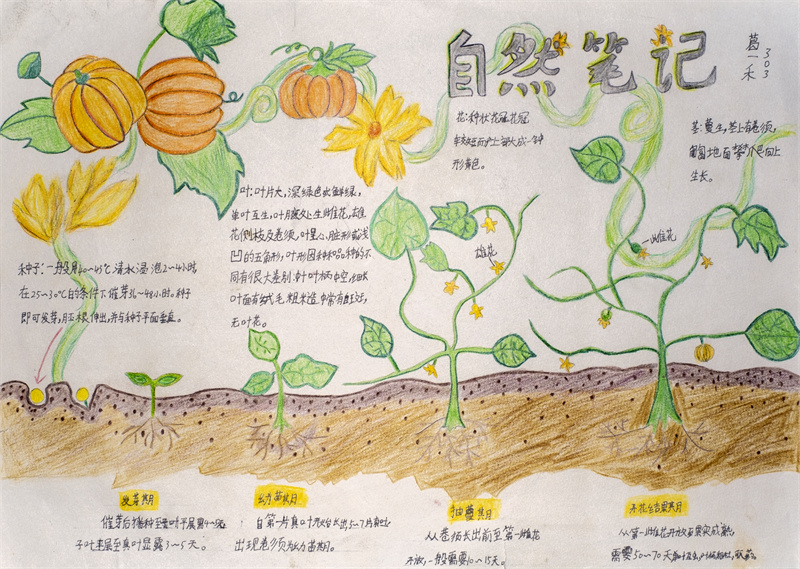 自然笔记
葛一禾
303
花:种状花冠花冠
上部大成一钟
形黄色。
茎:蔓生,茎上有卷须,
匍匐地面攀爬向上
生长。
叶:叶片大,深绿色或鲜绿,
单叶互生,叶腋处生雌花,雄
花侧枝及卷须,叶呈心脏形或浅
凹的五角形,叶形因种和品种的不
同有很大差别,叶柄中空,
叶面有绒毛,粗糙,
无叶花。
种子:一般用40~45℃清水浸泡2~4小时
在25~30℃的条件下催芽36~48小时。种子
即可发芽,胚根伸出,并与种子平面垂直。
雄花
雌花
发芽期
催芽后播种至子叶平展需4~5
子叶平展至真叶显露3~5天。
幼苗期
自第一片真叶开始长出5~7片真叶
出现卷须为幼苗期。
抽蔓期
从卷须长出前至第一雌花
开放,一般需要10~15天。
开花结果期
从第一雌花开放至果实成熟,
需要50~70天